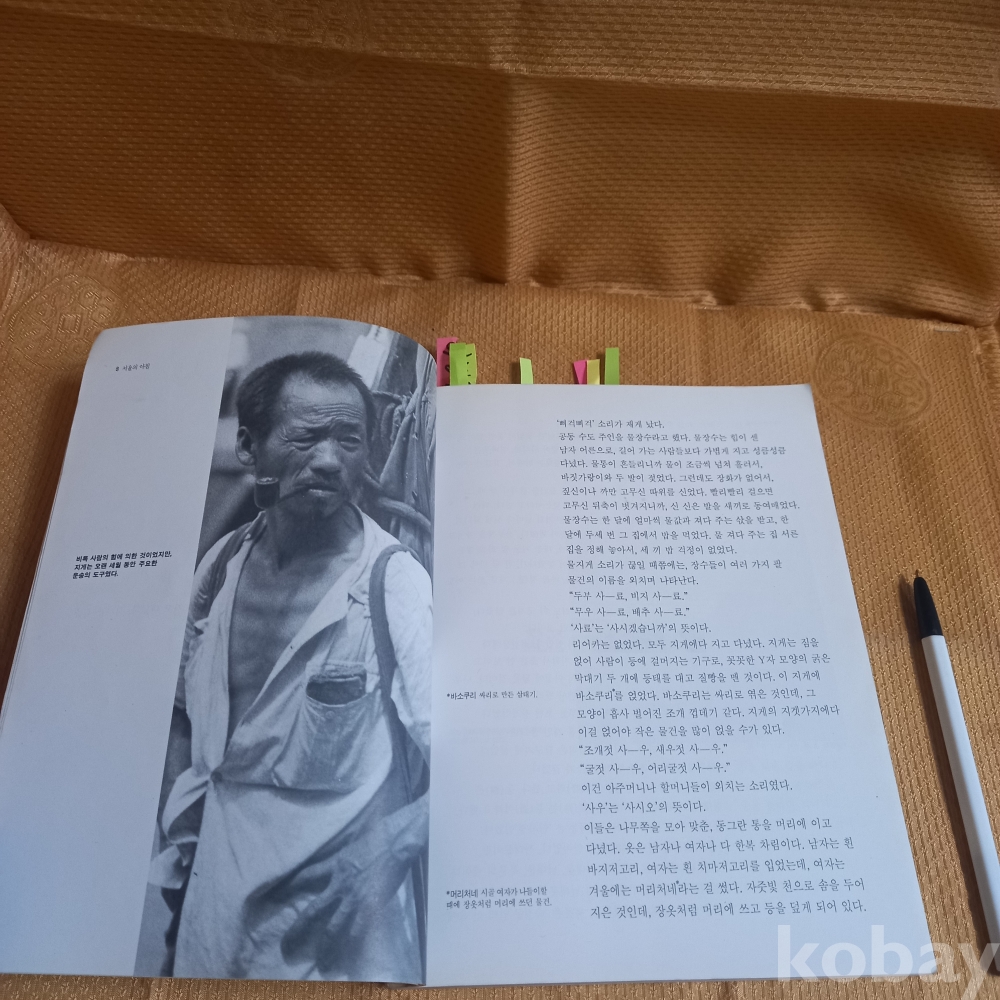 8 서울의 아침
비록 사람의 힘에 의한 것이었지만,
지게는 오랜 세월 동안 주요한
운송의 도구였다.
‘삐걱삐걱’ 소리가 제게 났다.
공동 수도 주인을 물장수라고 했다. 물장수는 힘이 센
남자 어른으로, 길어 가는 사람들보다 가볍게 지고 성큼성큼
다녔다. 물통이 흔들리니까 물이 조금씩 넘쳐 흘러서,
바짓가랑이와 두 발이 젖었다. 그런데도 장화가 없어서,
짚신이나 까만 고무신 따위를 신었다. 빨리빨리 걸으면
고무신 뒤축이 벗겨지니까, 신 신은 발을 새끼로 동여매었다.
물장수는 한 달에 얼마씩 물값과 져다 주는 삯을 받고, 한
달에 두세 번 그 집에서 밥을 먹었다. 물 져다 주는 집 서른
집을 정해 놓아서, 세 끼 밥 걱정이 없었다.
물지게 소리가 끊일 때쯤에는, 장수들이 여러 가지 팔
물건의 이름을 외치며 나타난다.
“두부 사—료, 비지 사—료.”
“무우 사—료, 배추 사—료.”
‘사료’는 ‘사시겠습니까’의 뜻이다.
리어카는 없었다. 모두 지게에다 지고 다녔다. 지게는 짐을
얹어 사람이 등에 걸머지는 기구로, 꼿꼿한 Y자 모양의 굵은
막대기 두 개에 등태를 대고 질빵을 맨 것이다. 이 지게에
*바소쿠리 싸리로 만든 삼태기.
바소쿠리*를 얹었다. 바소쿠리는 싸리로 엮은 것인데, 그
모양이 흡사 벌어진 조개 껍데기 같다. 지게의 지겟가지에다
이걸 얹어야 작은 물건을 많이 얹을 수가 있다.
“조개젓 사—우, 새우젓 사—우.”
“굴젓 사—우, 어리굴젓 사—우.”
이건 아주머니나 할머니들이 외치는 소리였다.
‘사우’는 ‘사시오’의 뜻이다.
이들은 나무쪽을 모아 맞춘, 동그란 통을 머리에 이고
다녔다. 옷은 남자나 여자나 다 한복 차림이다. 남자는 흰
바지저고리, 여자는 흰 치마저고리를 입었는데, 여자는
*머리처네 시골 여자가 나들이할
때에 장옷처럼 머리에 쓰던 물건.
겨울에는 머리처네*라는 걸 썼다. 자줏빛 천으로 솜을 두어
지은 것인데, 장옷처럼 머리에 쓰고 등을 덮게 되어 있다.
kobay